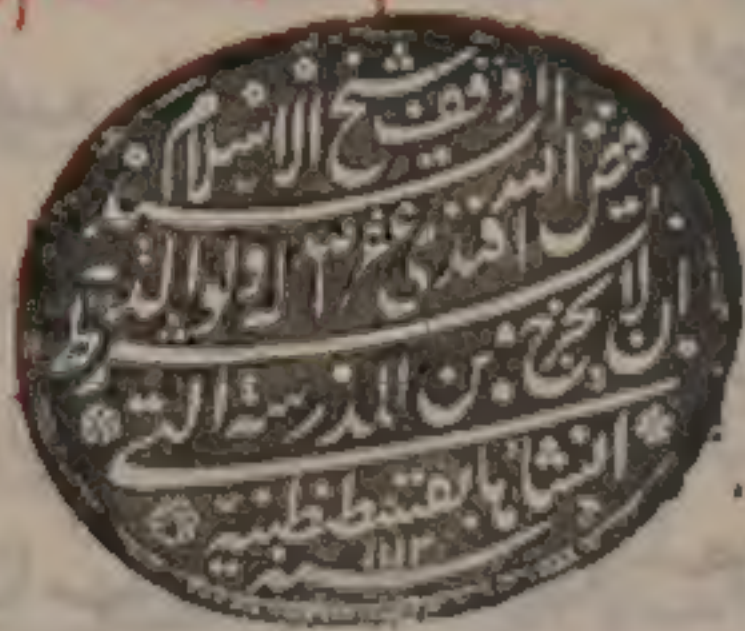 وقف شيخ الاسلام السيد
فيض الله افندي غفر الله له ولوالديه
بشرط ان لا يخرج من المدرسة التي
انشاها بقسطنطينية
سنة